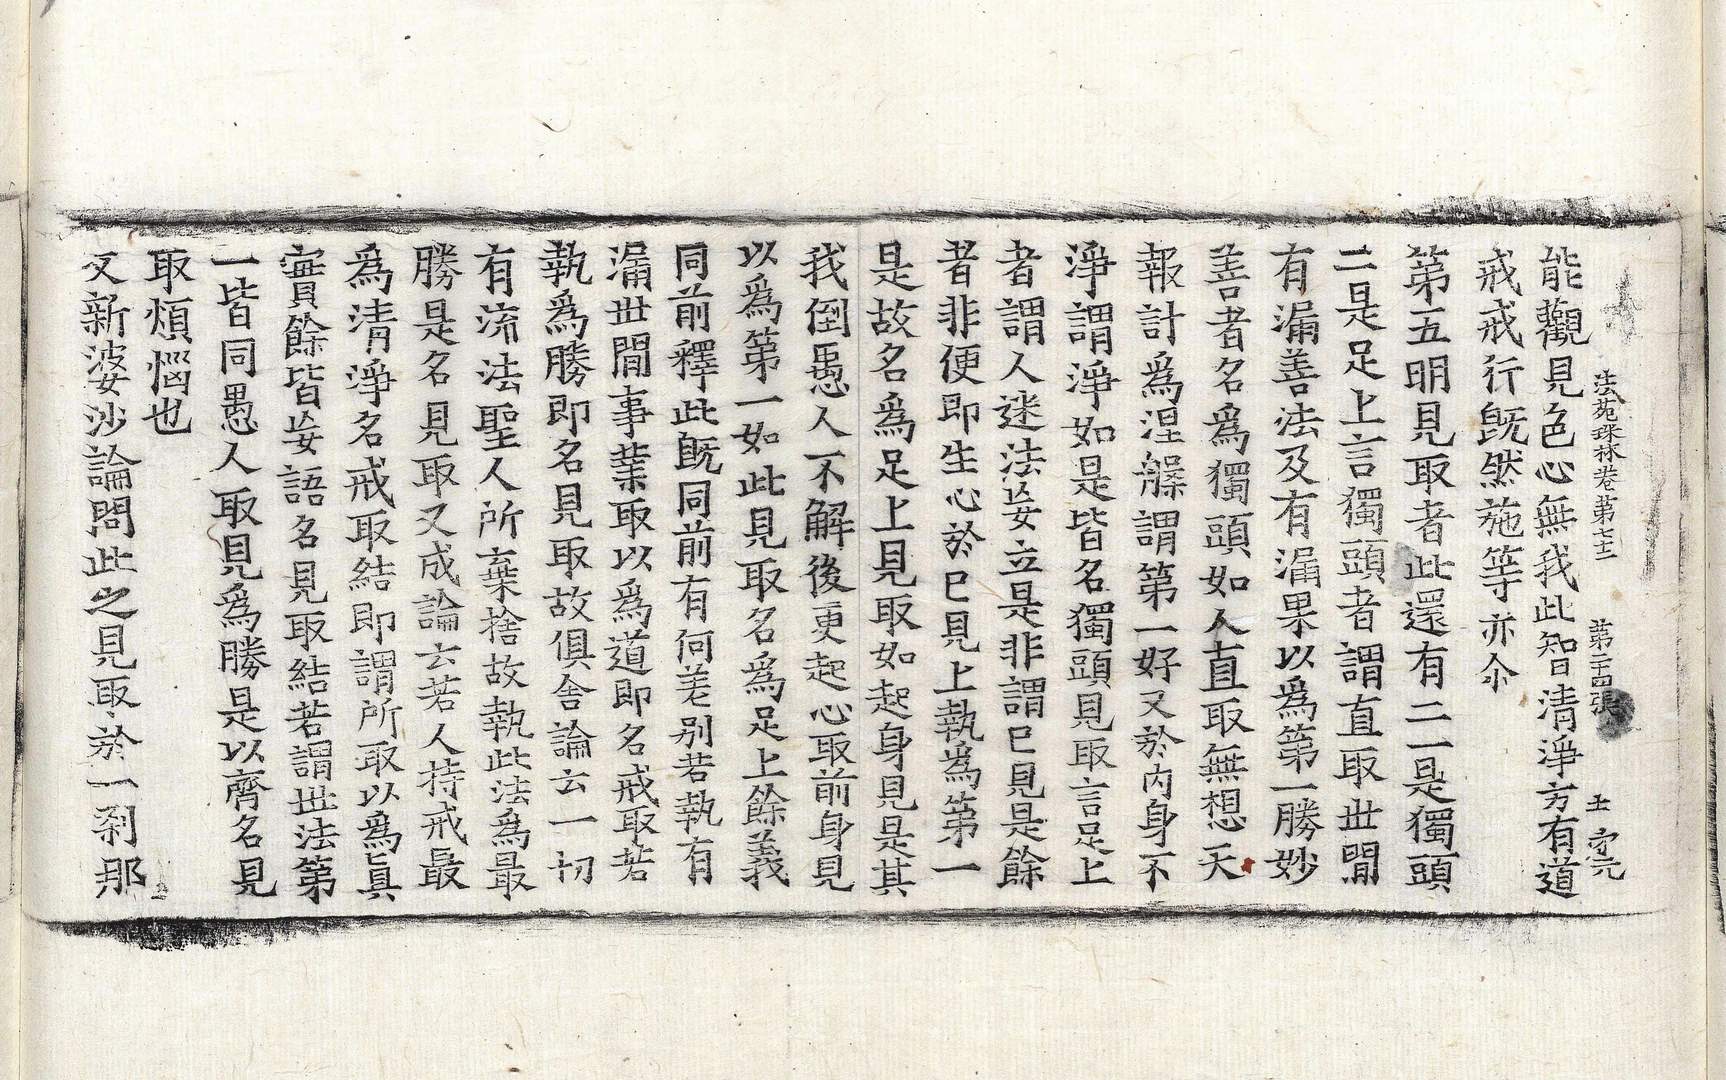 法苑珠林卷第七十二 第二十四張 土 守元
能觀見色心無我此智清淨方有道
戒戒行旣然施等亦尒
第五明見取者此還有二一是獨頭
二是足上言獨頭者謂直取世閒
有漏善法及有漏果以爲第一勝妙
善者名爲獨頭如人直取無想天
報計爲涅槃謂第一好又於內身不
淨謂淨如是皆名獨頭見取言足上
者謂人迷法妄立是非謂巳見是餘
者非便即生心於巳見上執爲第一
是故名爲足上見取如起身見是其
我倒愚人不解後更起心取前身見
以爲第一如此見取名爲足上餘義
同前釋此旣同前有何差別若執有
漏世閒事業取以爲道即名戒取若
執爲勝即名見取故俱舍論云一切
有流法聖人所棄捨故執此法爲最
勝是名見取又成論云若人持戒最
爲清淨名戒取結即謂所取以爲眞
實餘皆妄語名見取結若謂世法第
一皆同愚人取見爲勝是以齊名見
取煩惱也
又新婆沙論問此之見取於一剎那